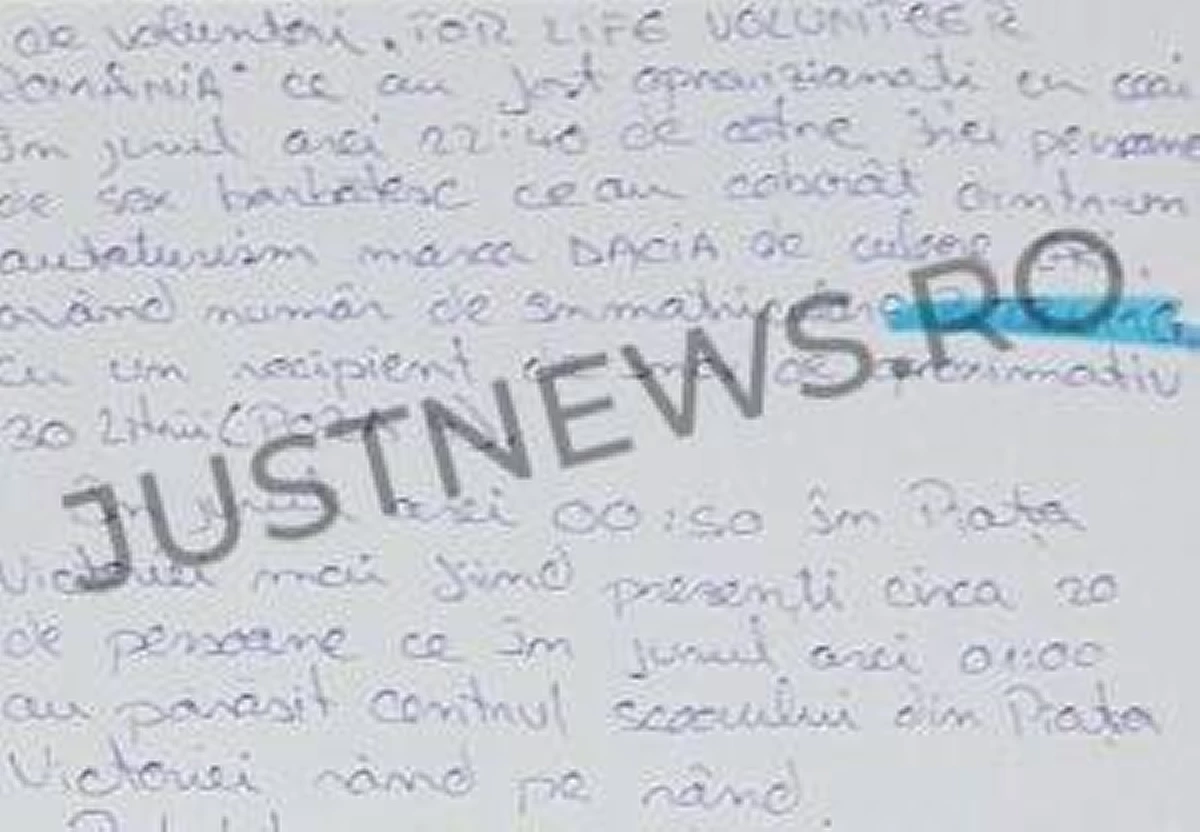 de voluntari „FOR LIFE VOLUNTEER
ROMÂNIA" ce au fost aprovizionati cu ceai
în jurul orei 22:40 de către trei persoane
de sex bărbătesc ce au coborât dintr-un
autoturism marca DACIA de culoare
având număr de înmatriculare
cu un recipient de aproximativ
30 Litrii
În jurul orei 00:50 în Piața
Victoriei mai fiind prezenți circa 20
de persoane ce în jurul orei 01:00
au părăsit centrul scoarului din Piața
Victoriei rând pe rând.
JUSTNEWS.RO